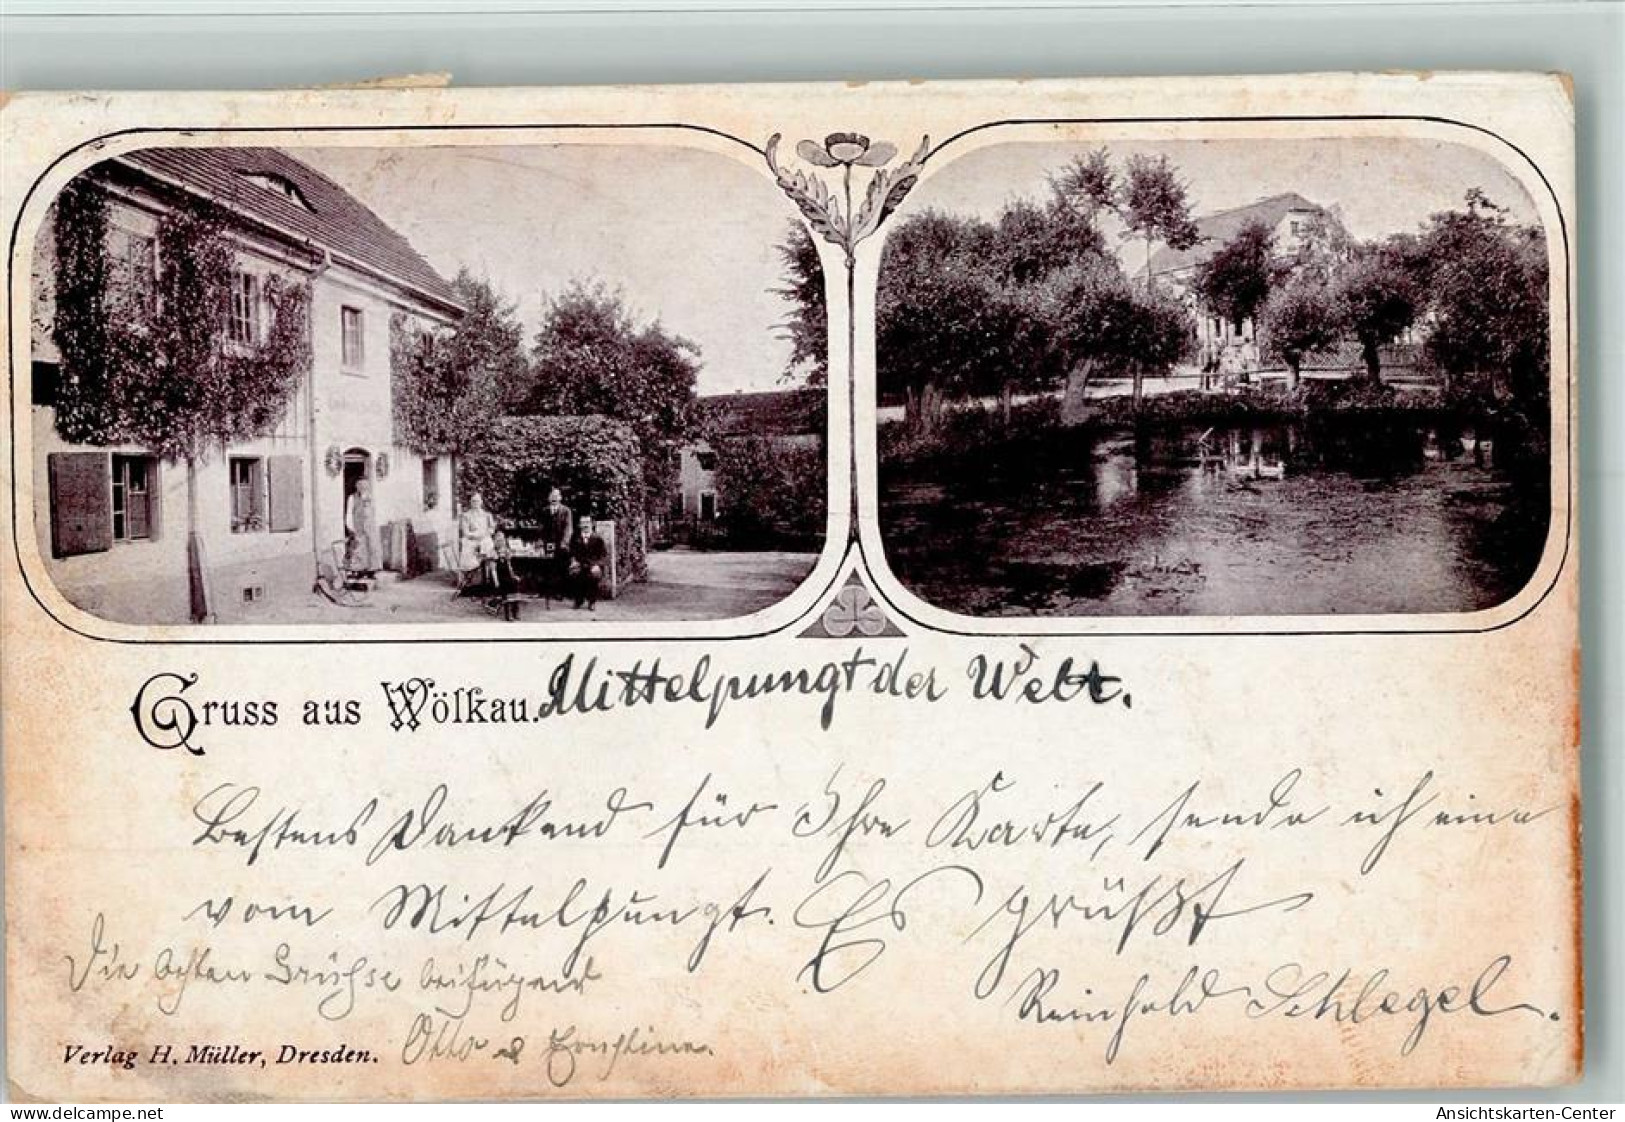 Gruss aus Wölkau. Mittelpungt der Welt.
Bestens Dankend für Ihre Karte, sende ich eine
vom Mittelpungt. Es grüßt
Die besten Grühse beifügend
Reinhold Schlegel.
Verlag H. Müller, Dresden. Otto & Ernstine.
delcampe.net
Ansichtskarten-Center